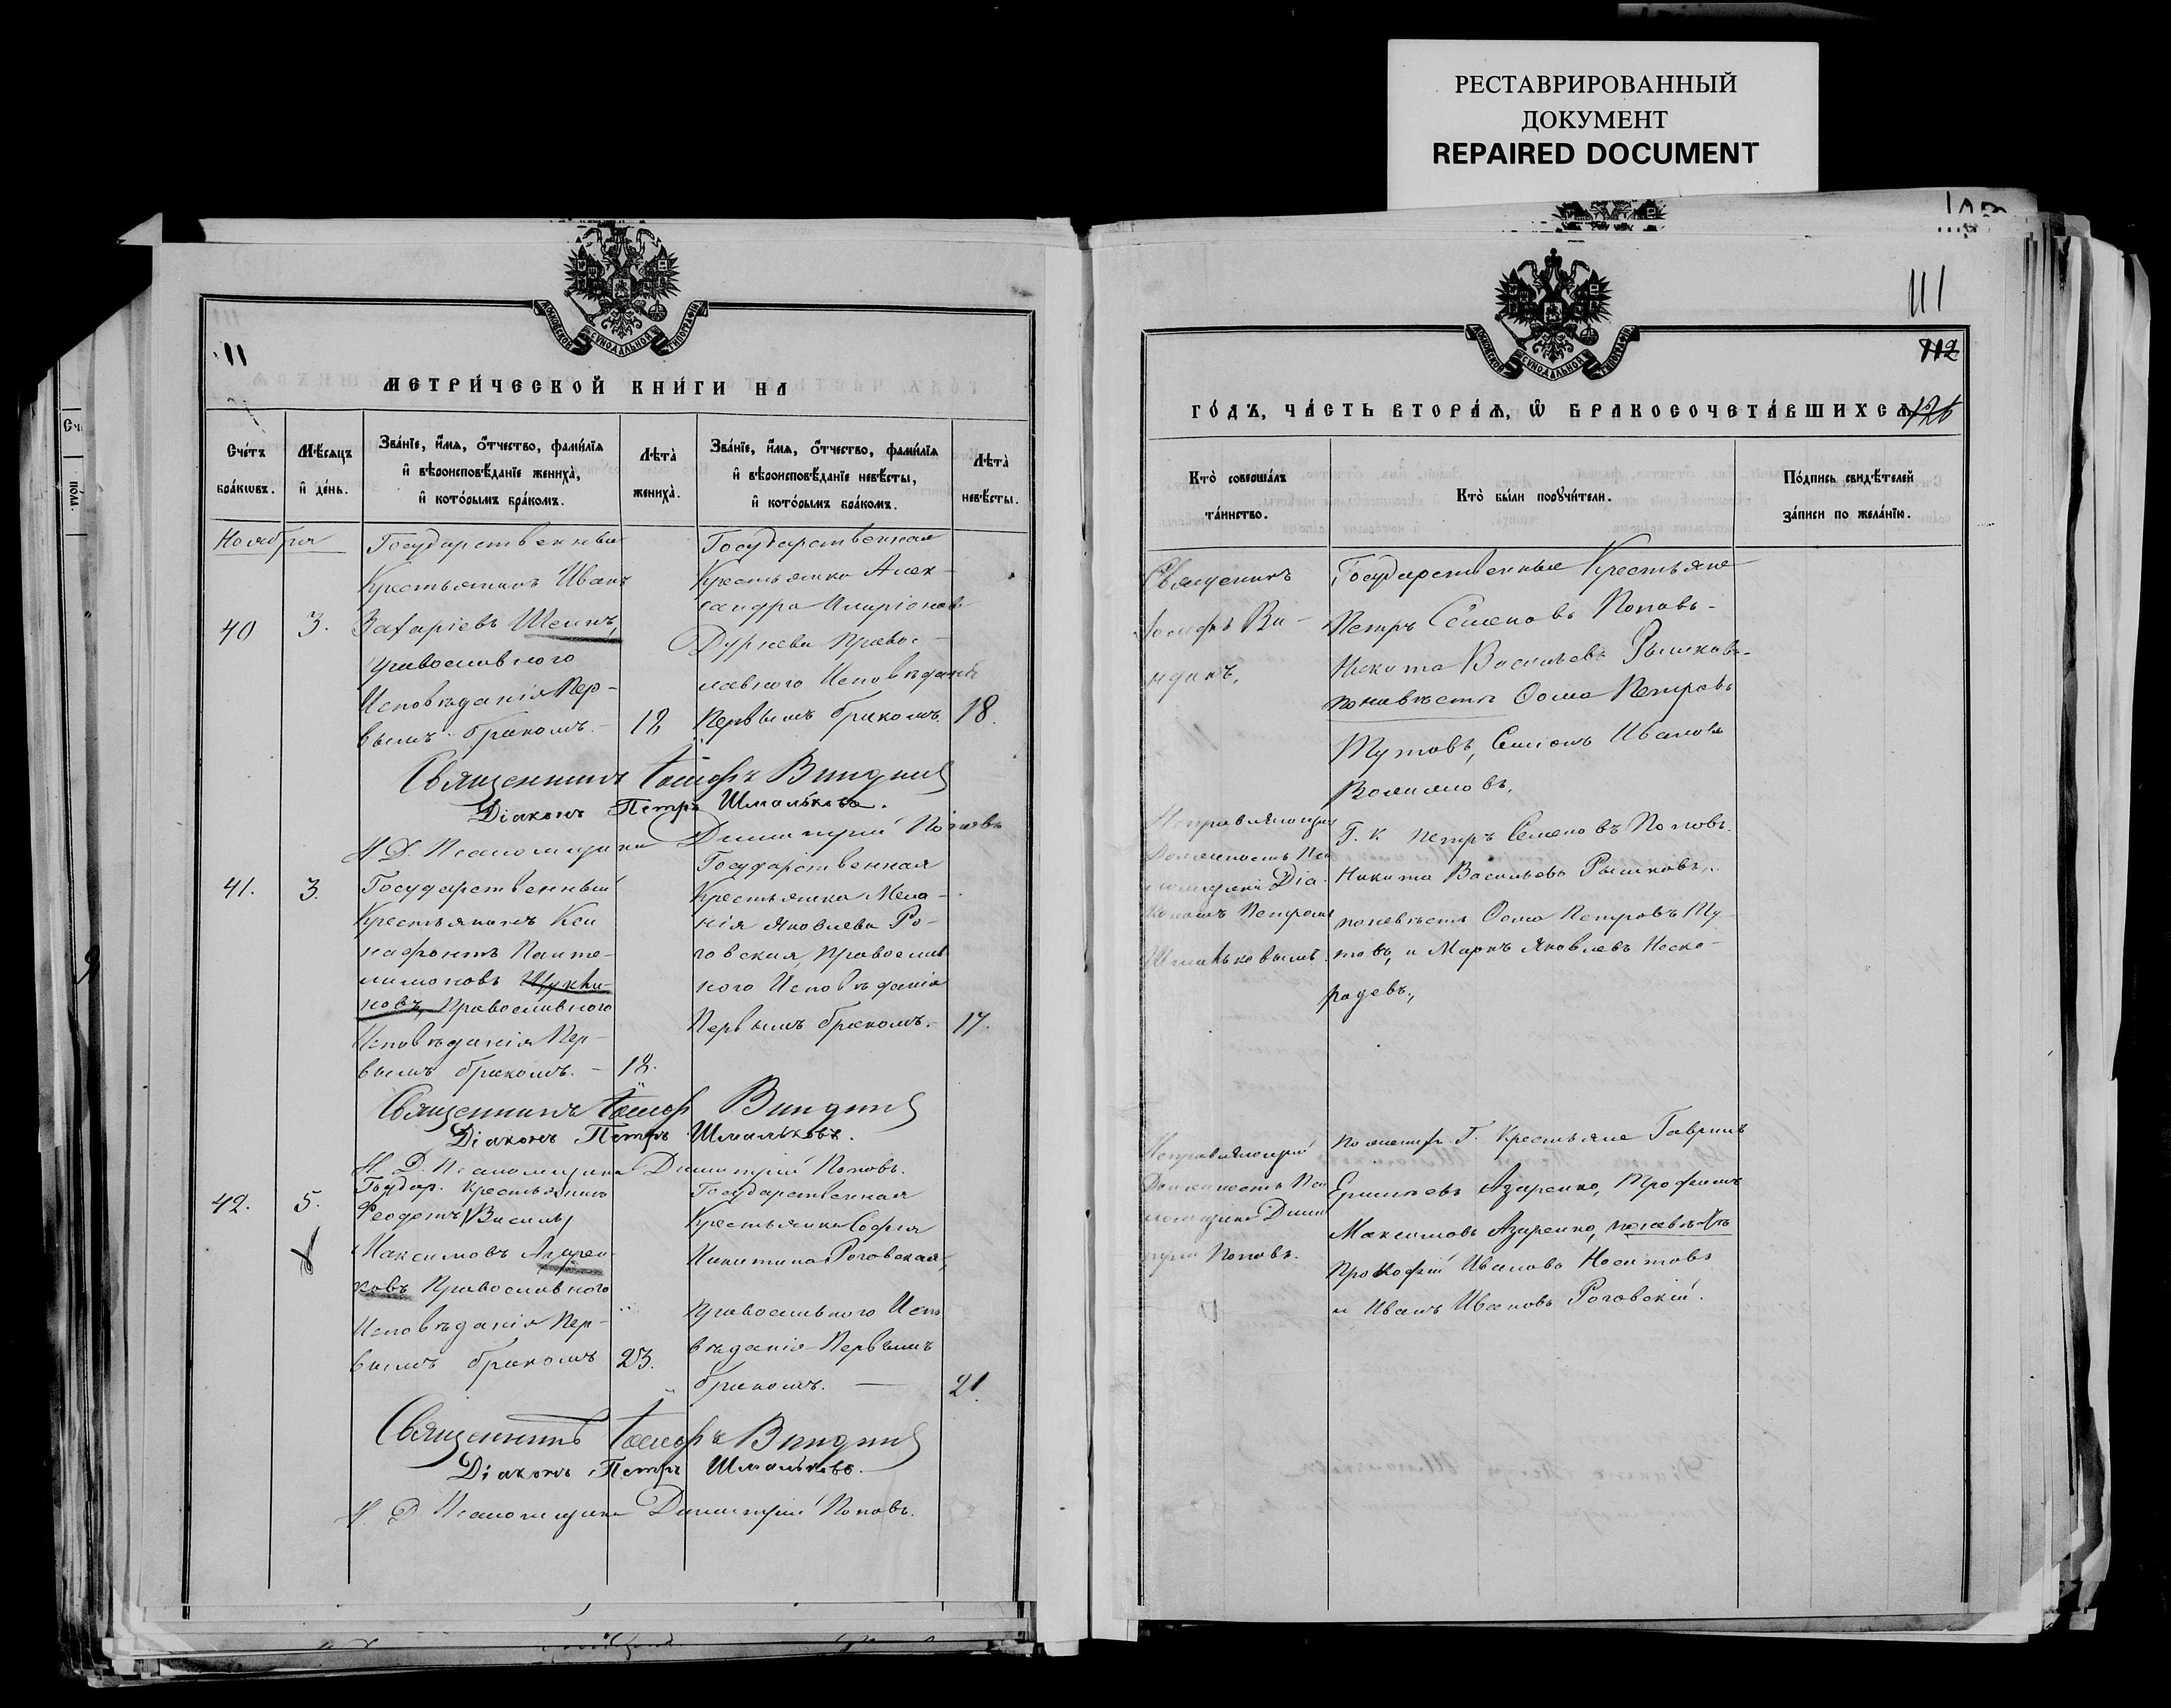 РЕСТАВРИРОВАННЫЙ
ДОКУМЕНТ
REPAIRED DOCUMENT
11
МЕТРИ́ЧЕСКОЙ КНИ́ГИ НА
Сче́тъ бра́кѡвъ.
Мѣ́сѧцъ и҆ де́нь.
Зва́нїе, и҆́мѧ, ѻ҆́тчество, фами́лїѧ
и҆ вѣроисповѣ́данїе жениха̀,
и҆ кото́рымъ бра́комъ.
Лѣта̀ жениха̀.
Зва́нїе, и҆́мѧ, ѻ҆́тчество, фами́лїѧ
и҆ вѣроисповѣ́данїе невѣ́сты,
и҆ кото́рымъ бра́комъ.
Лѣта̀ невѣ́сты.
Ноября
40
3.
Государственный
Крестьянинъ Иванъ
Захаріевъ Шеинъ,
Православного
Исповѣданія Пер-
вымъ бракомъ.-
18
Государственная
Крестьянка Алек-
сандра Иларіонова
Дурнева Правос-
лавного Исповѣданія
Первымъ бракомъ
18.
Священникъ Іосифъ Виндинъ
Діаконъ Петръ Шмальковъ.
И. Д. Псаломщика Димитрій Поповъ
41.
3.
Государственный
Крестьянинъ Ксе
нафонтъ Панте-
лимоновъ Щукли-
новъ, Православного
Исповѣданія Пер-
вымъ бракомъ. -
18.
Государственная
Крестьянка Мела-
нія Яковлева Ро-
говская, Православ
ного Исповѣданія
Первымъ бракомъ.-
17.
Священникъ Іосиф Виндинъ
Діаконъ Петръ Шмальковъ.
И. Д. Псаломщика Димитрій Поповъ.
42.
5.
Государ. Крестьянинъ
Феодотъ /Василь/
Максимовъ Азарен-
ковъ Православного
Исповѣданія Пер-
вымъ бракомъ
23.
Государственная
Крестьянка Софія
Никитина Роговская,
Православного Испо
вѣданія Первымъ
бракомъ. —
21.
Священникъ Іосифъ Виндинъ
Діаконъ Петръ Шмальковъ.
И. Д. Псаломщика Димитрій Поповъ.
111
112
ГО́ДЪ, ЧА́СТЬ ВТОРА́Ѧ, Ѡ҆ БРАКОСОЧЕТА́ВШИХСѦ
Кто̀ соверша́лъ
та́инство.
Кто̀ бы́ли порꙋчи́тели.
По́дпись свидѣ́телей
за́писи по жела́нїю.
Священникъ
Іосифъ Ви-
ндинъ,
Государственные Крестьяне
Петръ Семеновъ Поповъ-
Никита Васильевъ Рышковъ-
поневѣсты Фома Петровъ
Тутовъ, Семіонъ Ивановъ
Исправляющій
Должность Пса
ломщика Діа-
кономъ Петромъ
Шмальковымъ.
Г. К Петръ Семеновъ Поповъ.
Никита Васильевъ Рышковъ,
поневѣстѣ Фома Петровъ Ту-
товъ, и Маркъ Яковлевъ
Исправляющій
Должность Пса
ломщика Дими
трій Поповъ.
По женихѣ Г. Крестьяне Гавріилъ
Азаренко, Трофимъ
Максимовъ Азаренко, поневѣстѣ
Прокофій Ивановъ
и Иванъ Ивановъ Роговскій.